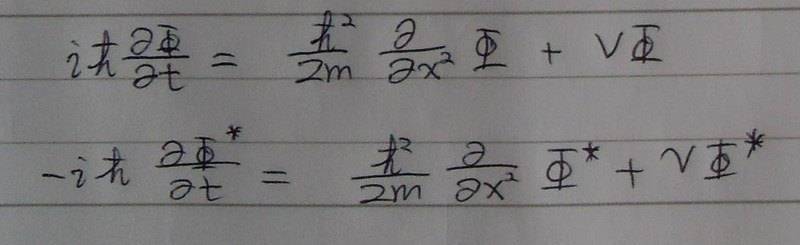 iℏ ∂Φ/∂t = ℏ²/2m ∂/∂x² Φ + VΦ
-iℏ ∂Φ*/∂t = ℏ²/2m ∂/∂x² Φ* + VΦ*